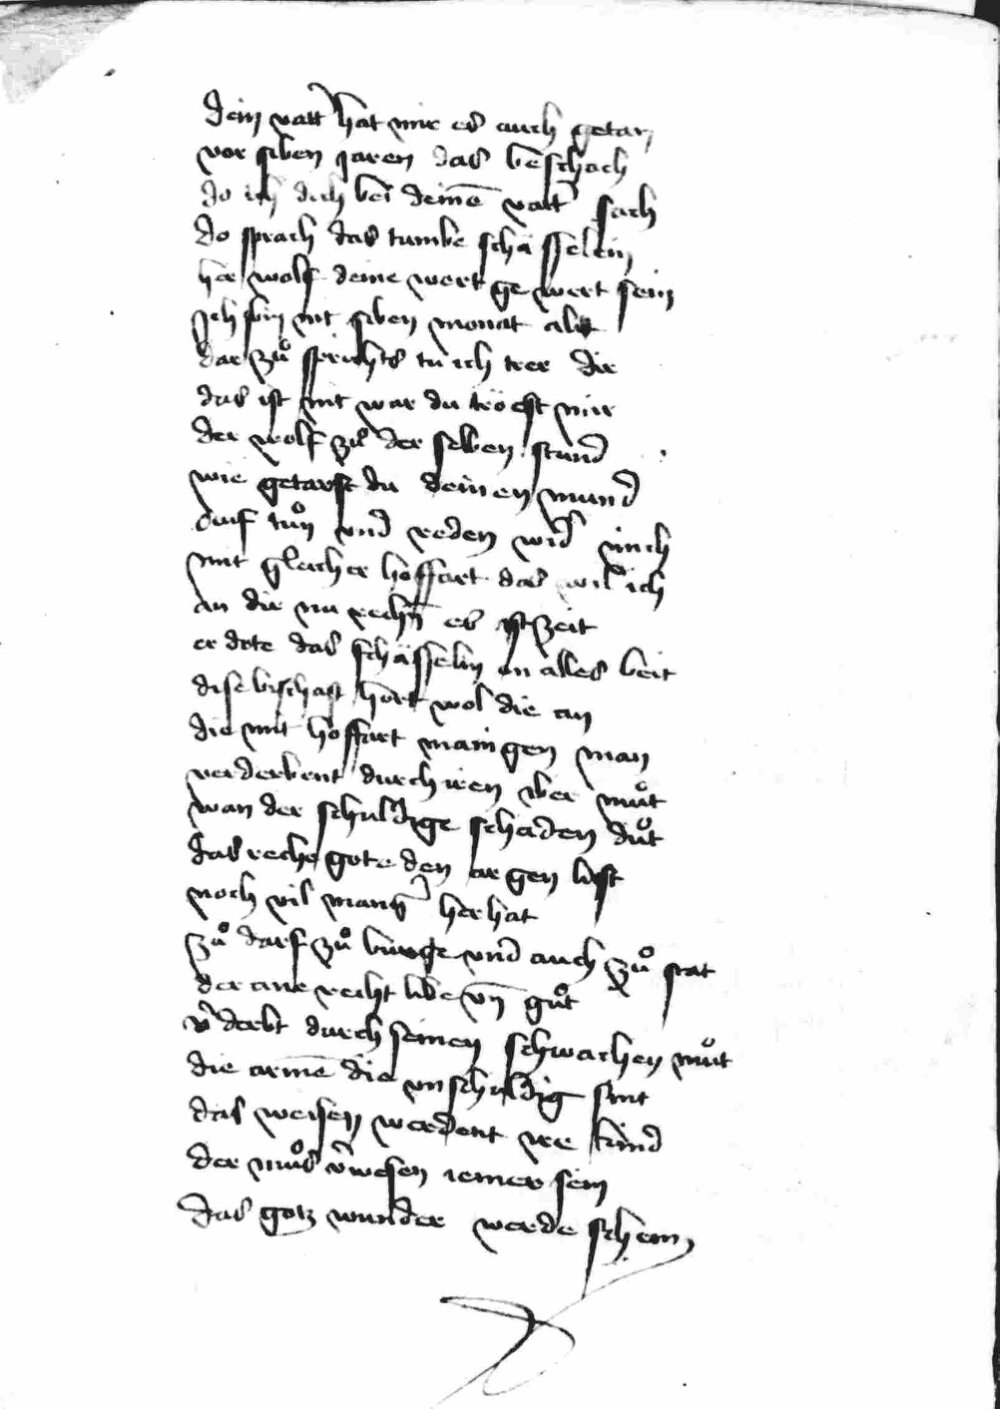 Dein vatt̉ hat mir es auch getan
vor siben jaren das beschach
do ich dich bei deinē vatt̉ sach
do sprach das tumbe schässelein
her wolf deine wort ge wert sein
Ich bin nit siben monat alt
dar zuͦ sprichts tu ich trer dir
das ist nit war du tröest mir
der wolf zuͦ der selben stund
wie getarst du deinen mund
auf tuͦn vnd reden wid̉ mich
mit gleicher hoffart das wil ich
an dir nu rechn̄ es ist zeit
er dote das schässelin on alles beit
dise bischaft hört wol die an
die mit hoffart mainigen man
verderbent durch iren vber muͦt
wan der schuldige schaden duͦt
das reche gote den argen list
noch vil mang̉ her hat
zuͦ darf zuͦ burge vnd auch zuͦ stat
der ane recht libe vn̄ guͦt
v̉derbt durch seinen schwachen muͦt
die armē die vnschuldig sint
das weisen werdent ire kind
der muͦs v̉wesen iemer sein
das gotz wunder werde schein